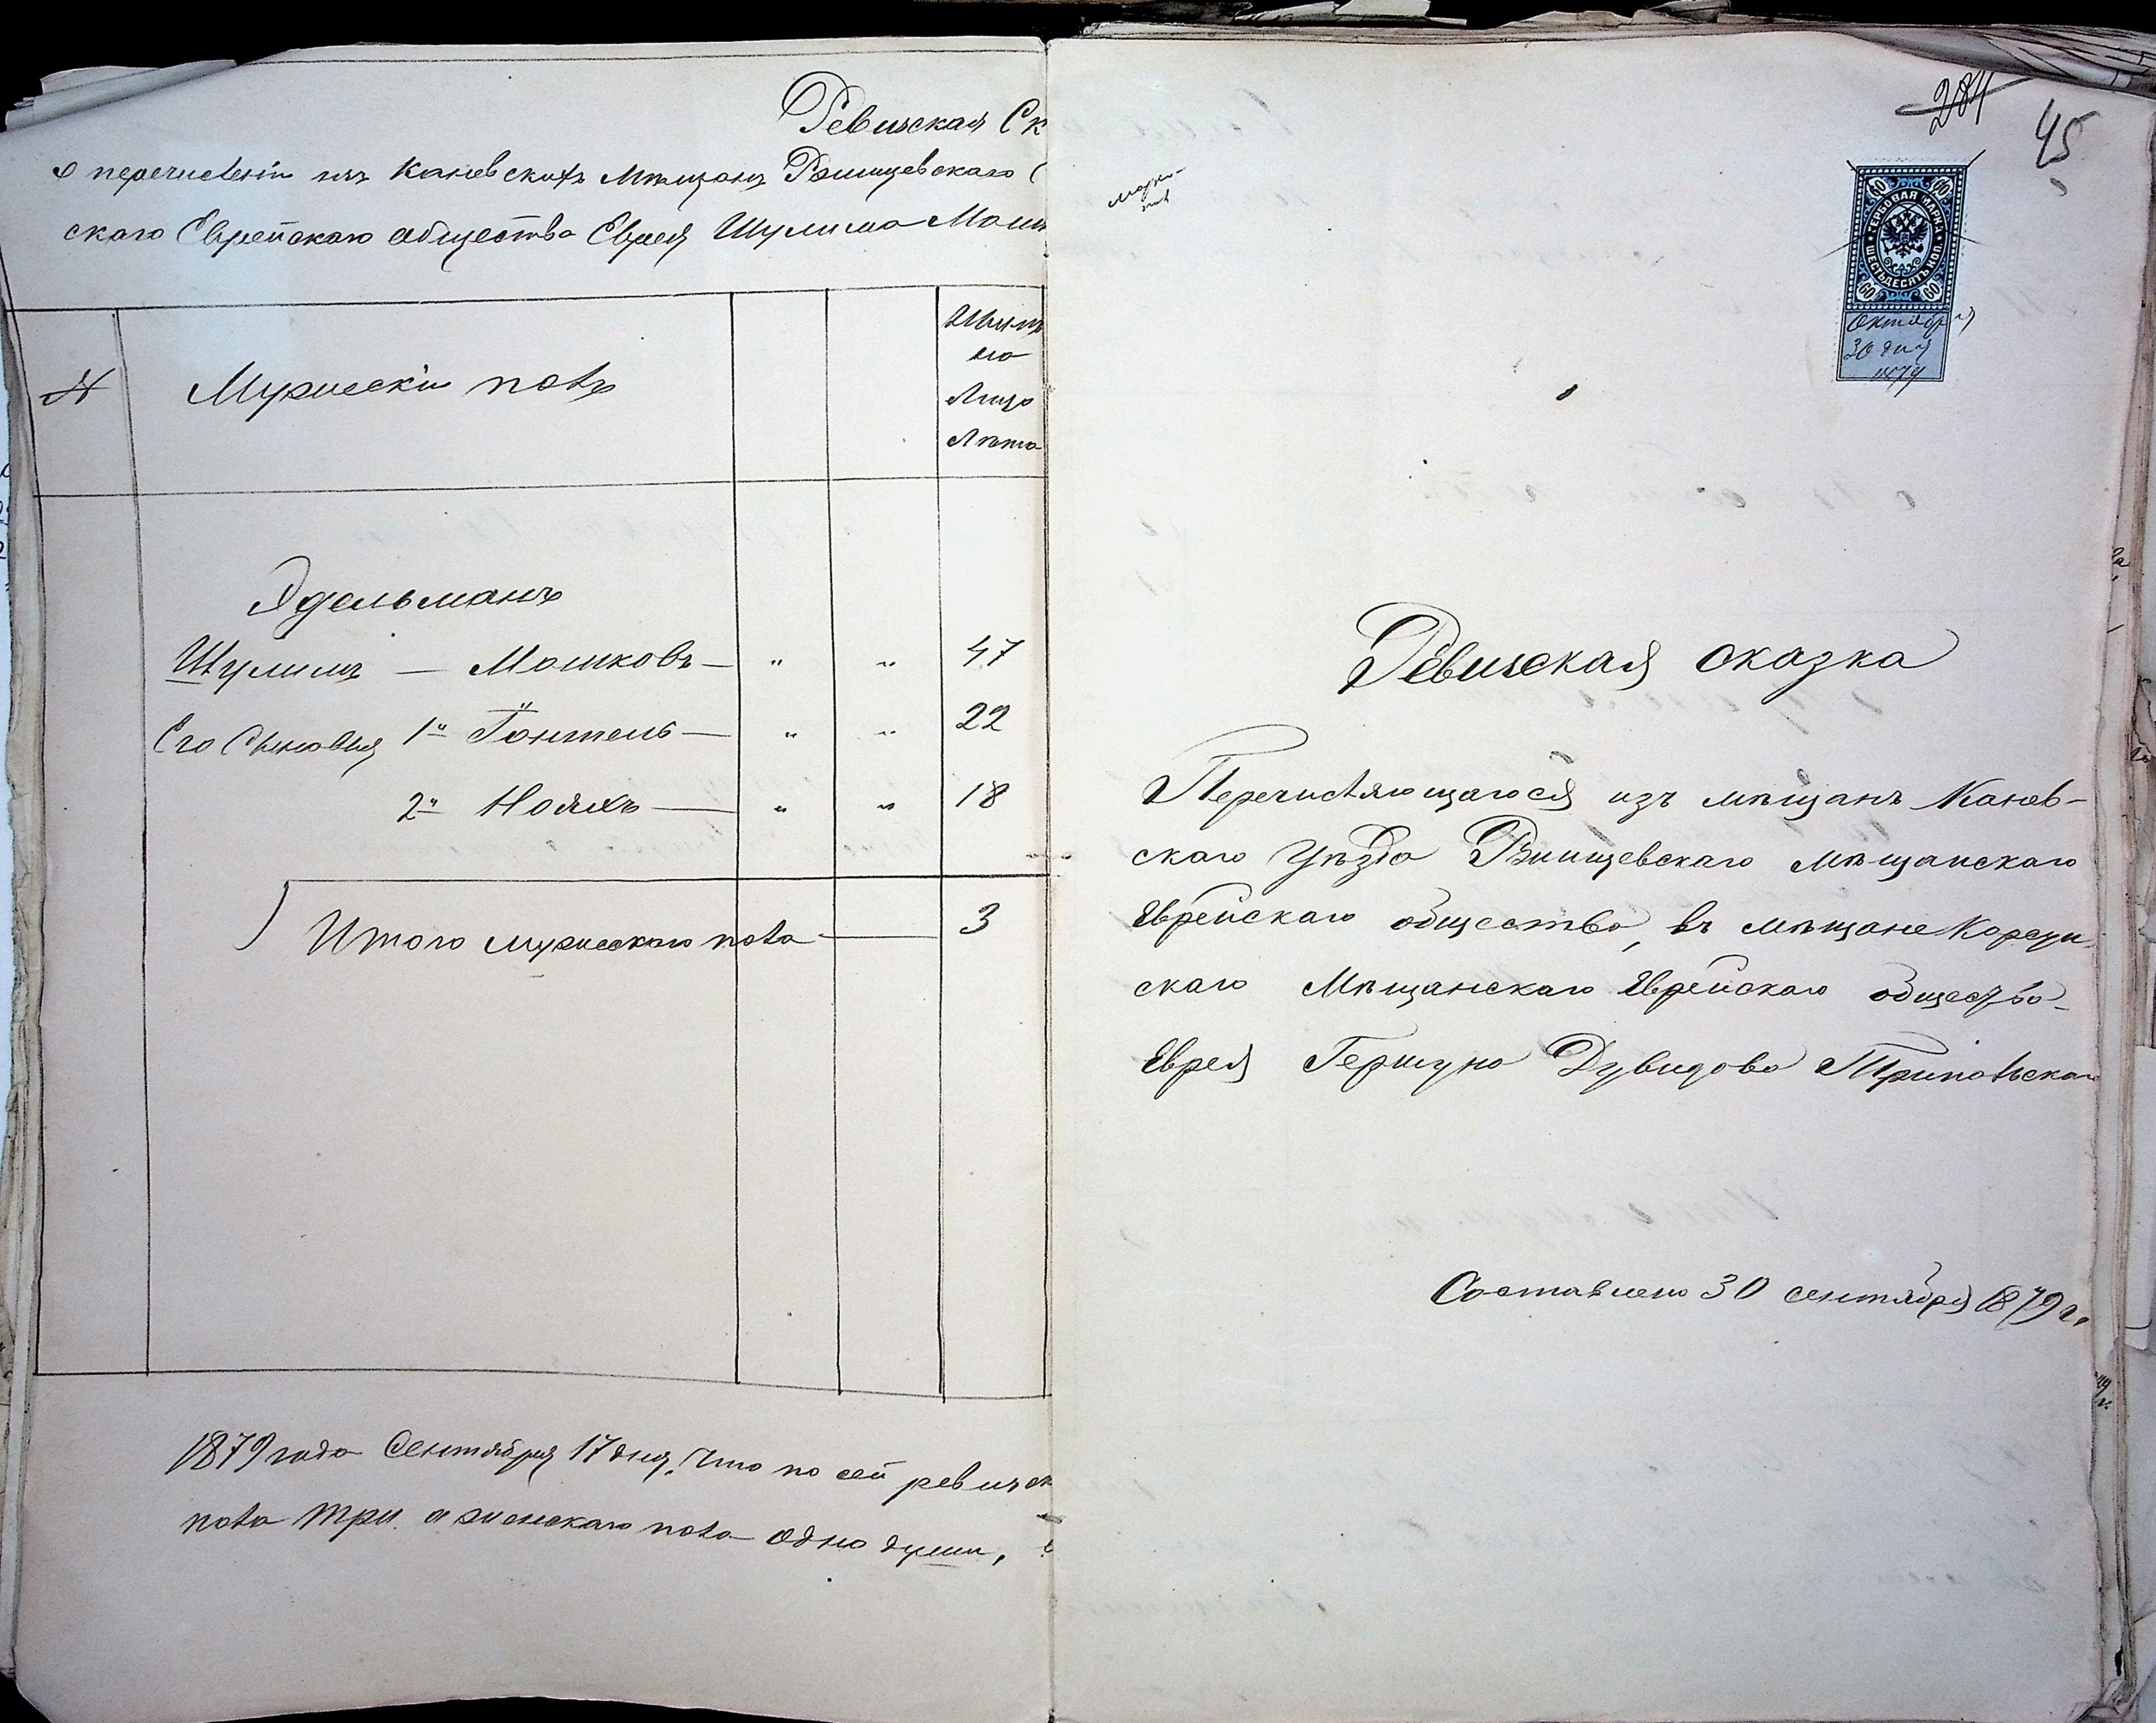 Ревизская Ск
о перечислении изъ Каневскихъ Мѣщанъ Ржищевскаго
скаго Еврейскаго общества Еврея Шулима Мош
№
Мужески полъ
Лица
Лѣта
Эдельманъ
Шулимъ — Мошковъ — " " 47
Его Сыновья 1й Гонтель — " " 22
2й Ноахъ — " " 18
Итого мужескаго пола — 3
1879 года Сентября 17 дня. Что по сей ревизск
пола три а женскаго пола одно души,
284
45
ГЕРБОВАЯ МАРКА
ШЕСТЬДЕСЯТЪ КОП.
60 60
60 60
Октября
30 дня
1879
Ревизская сказка
Перечисляющагося изъ мѣщанъ Канев-
скаго уѣзда Ржищевскаго мѣщанскаго
Еврейскаго общества, въ мѣщане Корсун
скаго Мѣщанскаго Еврейскаго общества
Еврея Гершуна Дувидова Трипольскаго
Составлено 30 сентября 1879 г.